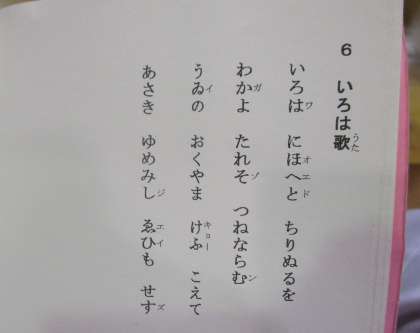 6 いろは歌
うた
いろは にほへと ちりぬるを
ワ オエド
わかよ たれそ つねならむ
ガ ゾ ン
うゐの おくやま けふ こえて
イ キョー
あさき ゆめみし ゑひも せす
ジ エイ ズ